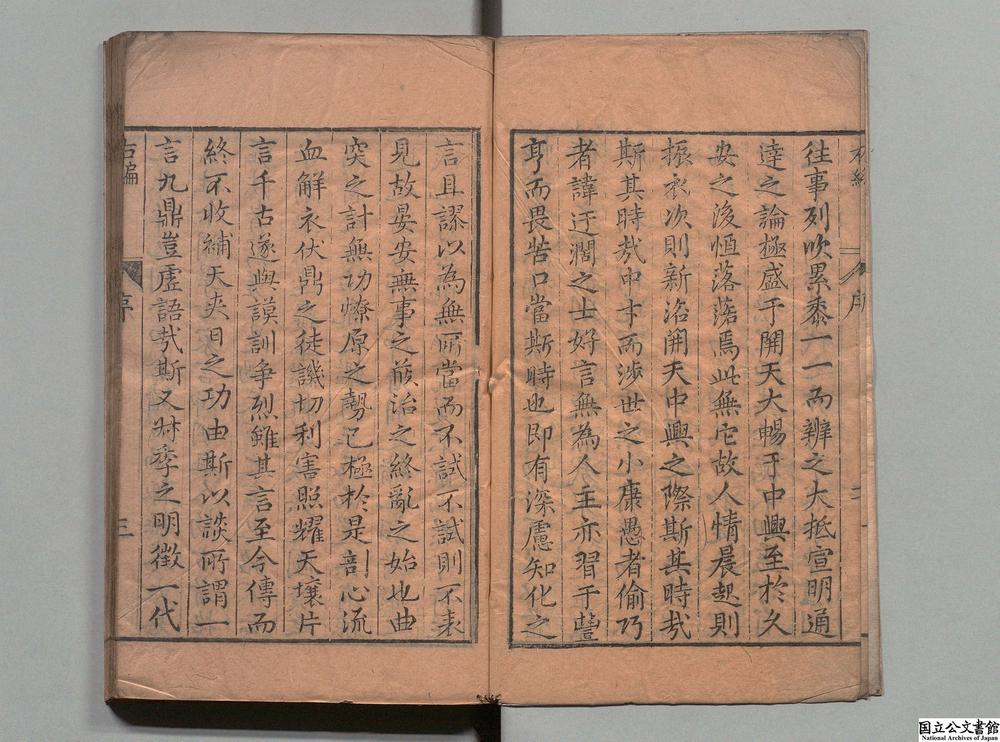 往事列吹累黍一一而辨之大抵宣明通
達之論極盛于開天大暢于中興至於久
安之後恒落落焉此無它故人情晨起則
振衣次則新沿開天中興之際斯其時㦲
斯其時㦲中才而涉世之小康愚者偷巧
者諱迂濶之士好言無為人主亦習于豐
亨而畏苦口當斯時也即有深慮知化之
言且謬以為無所當而不試不試則不表
見故晏安無事之世治之終亂之始也曲
突之計無功燎原之勢已極於是剖心流
血解衣伏鼎之徒譏切利害照耀天壤片
言千古遂與謨訓争烈雖其言至今傳而
終不收補天夾日之功由斯以談所謂一
言九鼎豈虛語㦲斯又叔季之明徵一代
右編
序
三
国立公文書館
National Archives of Japan